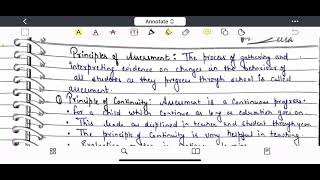 Annotate
Principles of Assessment : The process of gathering and
interpreting evidence on changes in the behaviour of
all students as they progress through school is called
assessment.
① Principle of Continuity : Assessment is a continuous progress
• for a child which continue as long as education goes on.
• This leads as displined in teacher and student through year.
• The principle of Continuity is very helpful in teaching